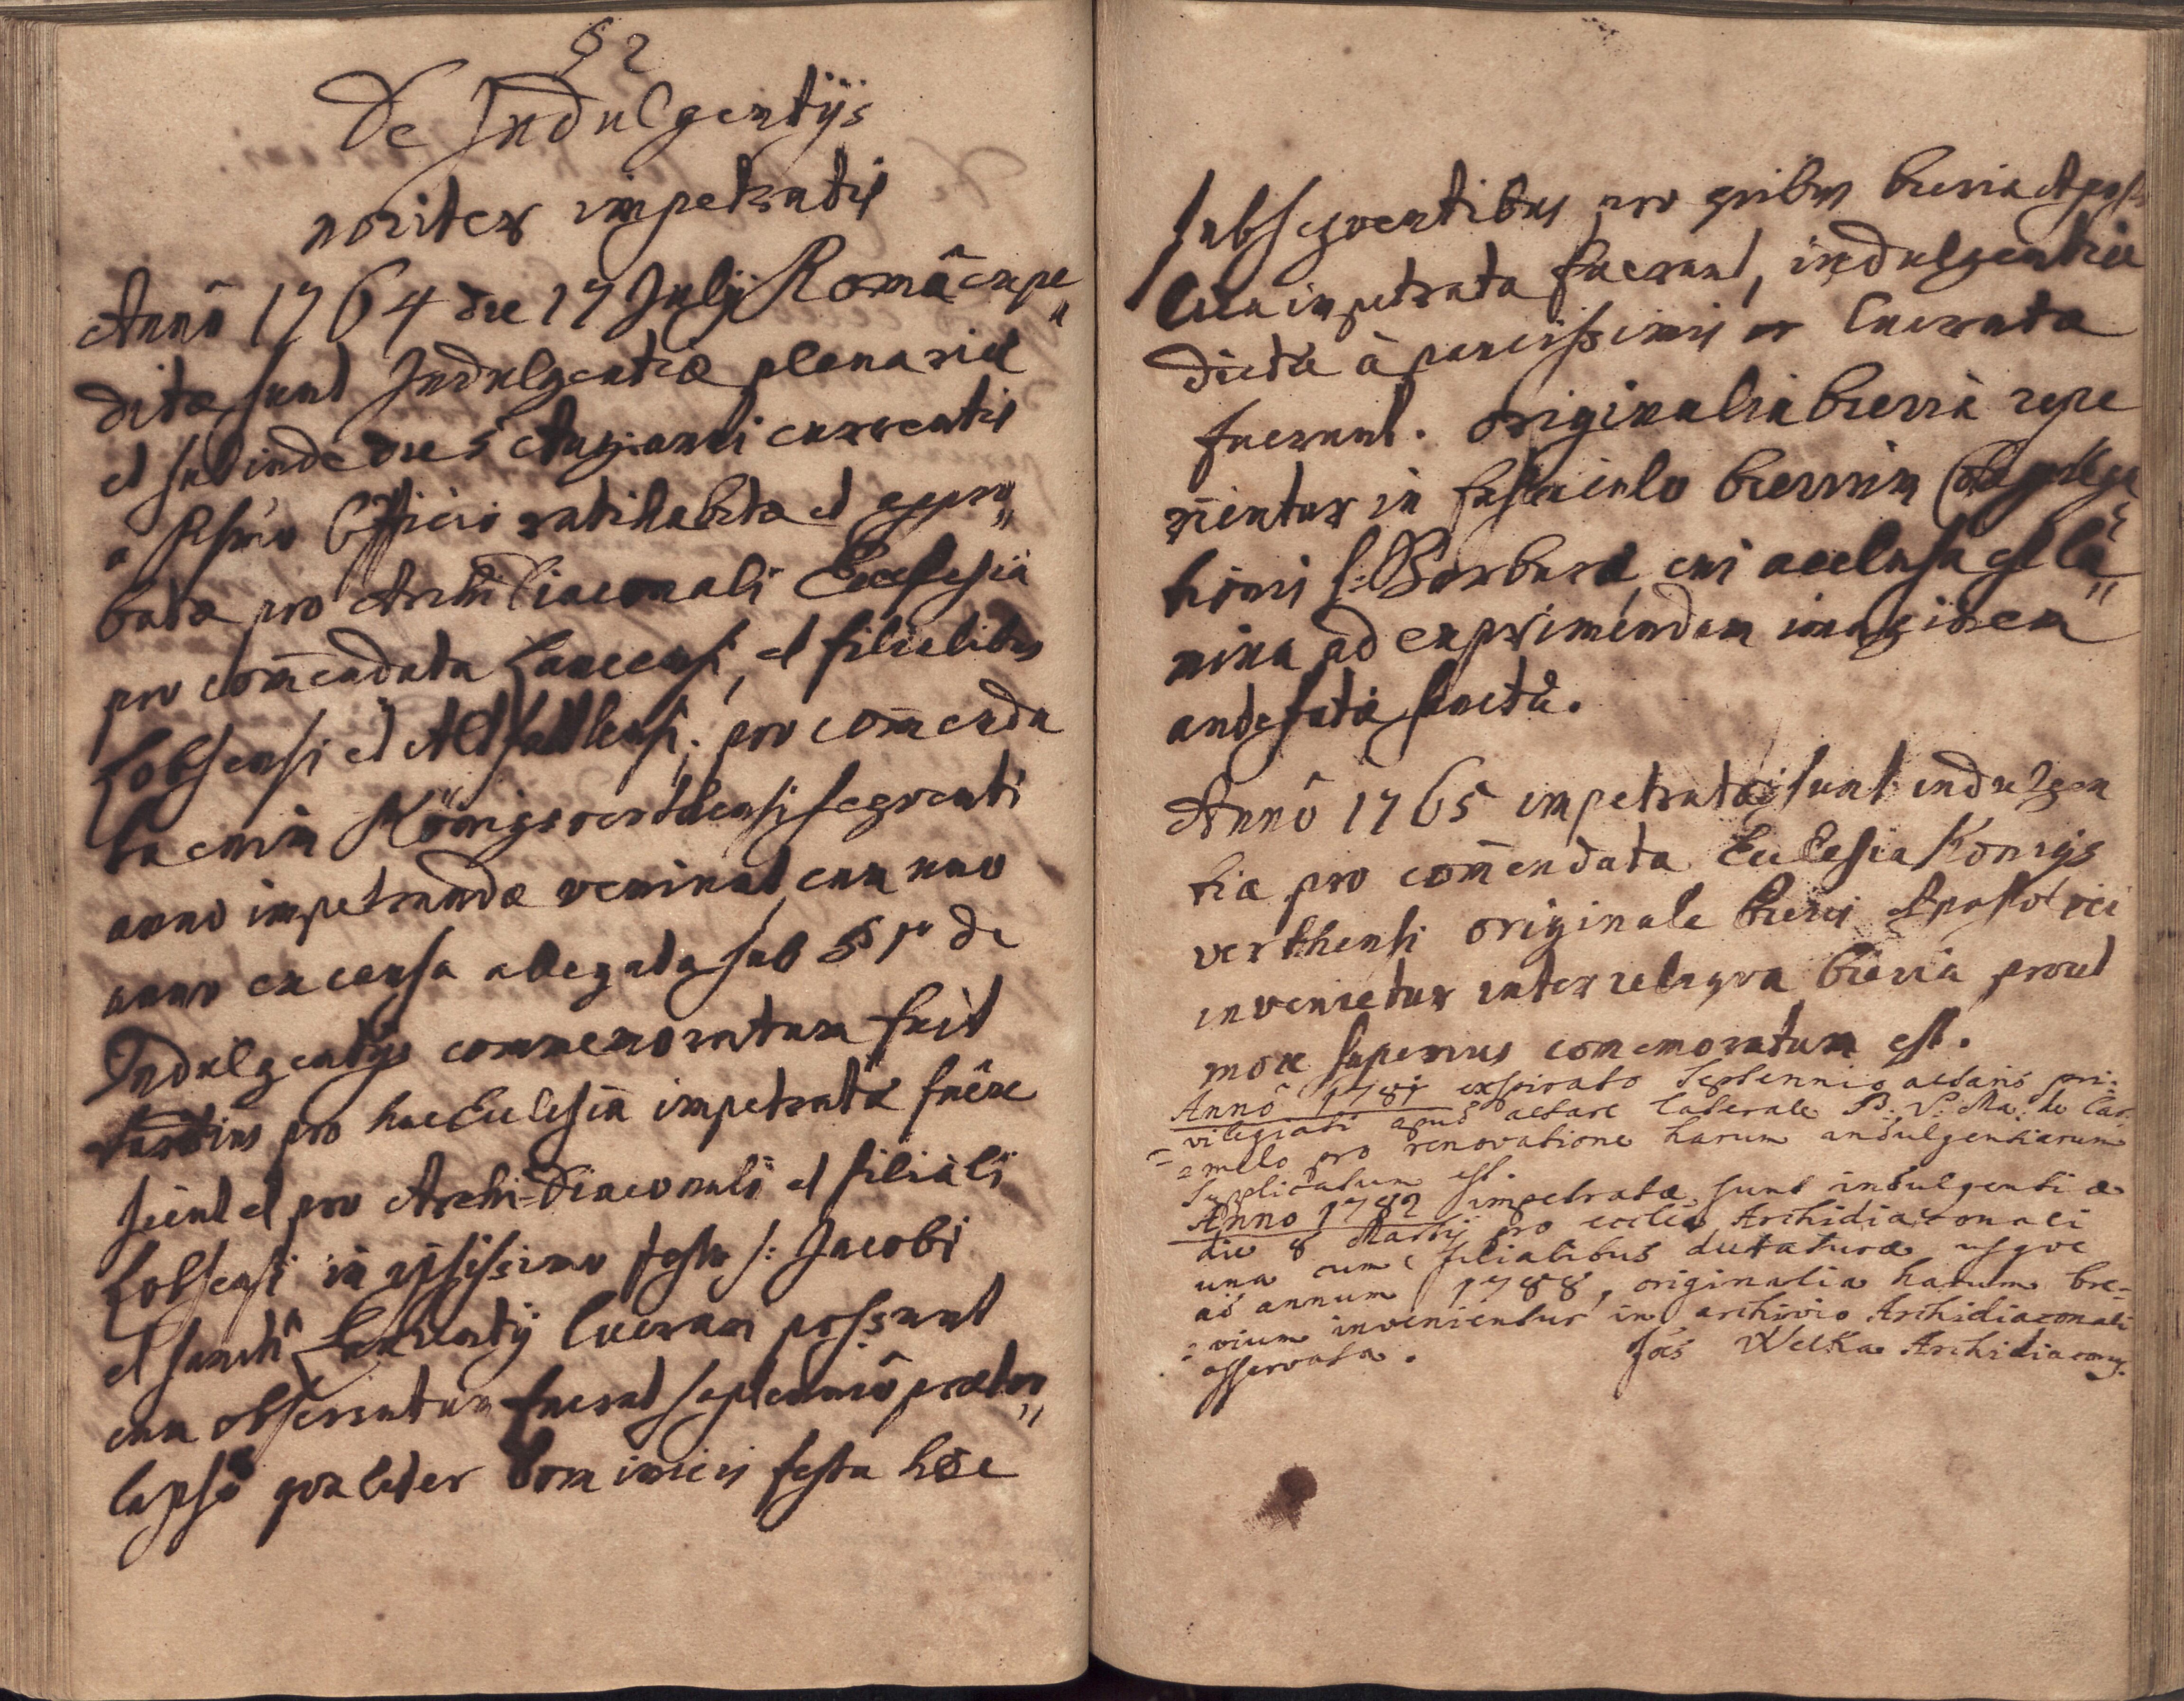 § 2
De Indulgentijs
noviter impetratis
Annô 1764 die 17 Julij Româ expe„
ditæ sunt Indulgentiæ plenariæ
et subinde die 5 Aug: anni currentis
a Rsmo Officio ratihabitæ et appro„
batæ pro Archi Diaconali Ecclesiâ
pro com̄endata et filialibus
Lobsensi et pro com̄enda
ta enim Königsverthensi seqventi
anno impetrandæ veniunt, cum uno
anno ex causa allegata sub § 1º de
Indulgentijs commemoratum fuit
tardius pro hac Ecclesiâ impetratæ fuêre
sicut et pro Archi-Diaconali et filiali
Lobsensi in ipsissimo festo s: Jacobi
et sancti Laurentij lucrari possunt
cum observatum fuerat septenniô præter„
lapsô qvaliter Dominicis festa hæc
subseqventibus pro qvibus brevia Aposto
lica impetrata fuerant, indulgentiæ
dictæ à paucissimis lucrata
fuerunt. Originalia brevia repe
rientur in fasciculo brevium
s: Barbaræ, cui acclusa est la„
mina ad exprimendam imaginem
antefatæ sanctæ.
Annô 1765 impetratæ sunt indulgen
tiæ pro com̄endata Ecclesia Königs
verthensi originale breve Apostolici
invenietur inter reliqva brevia prout
mox superius comemoratum est.
Annô 1781 expirato septennio altaris pri:
vilegiati apud altare laterale B. V. Ma: de Car-
=mello pro renovatione harum indulgentiarum
supplicatum est.
Anno 1782 impetratæ sunt indulgentiæ
die 8 Martij pro ecclia Archidiaconali
una cum filialibus usqve
ad annum 1788, originalia harum bre=
=vium invenientur in archivio Archidiaconali
asservata. Joēs Welka Archidiaconus.